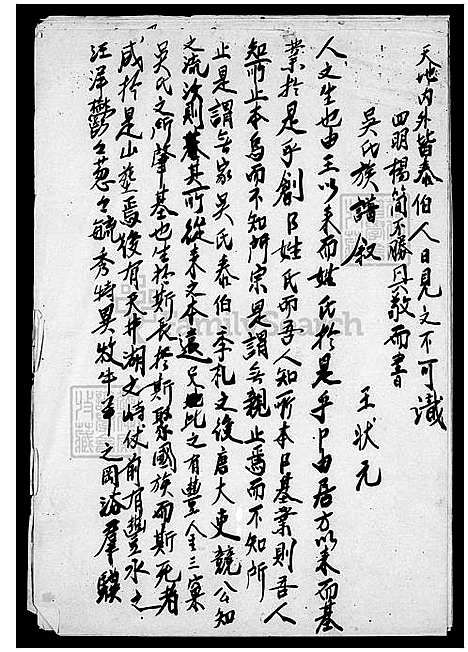 天地內外皆泰伯人日見之不可識
四明楊簡不勝具敬而書
吳氏族譜叙
王狀元
人之生也由王以來而姓氏於是乎卩由居方以來而基
業於是乎創卩姓氏而吾人知所本卩基業則吾人
知所止本焉而不知所宗是謂無親止焉而不知所
止是謂無家吳氏泰伯季札之後唐大吏競公知
之流次則基其所從來之本遠兄此之有豐全三窠
吳氏之所肇基也生於斯長於斯聚國族而斯死者
咸於是山塟焉後有天井湖之時伏前有豐水之
汪洋鬱々葱々毓秀特異牧牛平之岡浴羣驥
FamilySearch